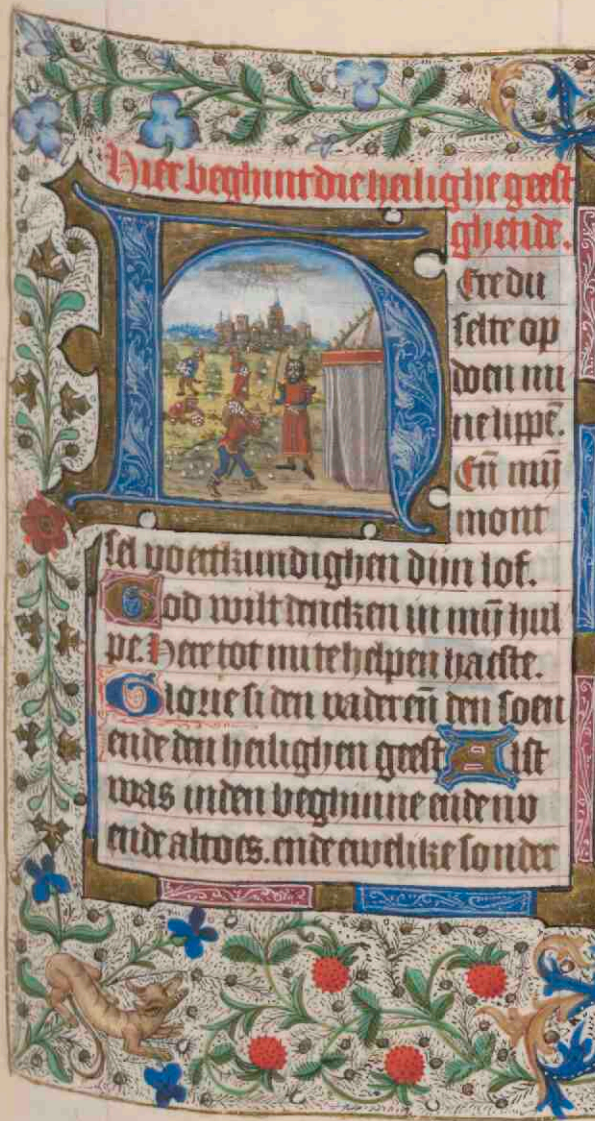 Hier beghint die heilighe geest
ghetide.
Here du
selte op
doen mi
ne lippē.
Eñ mijn
mont
sel voertkundighen dijn lof.
God wilt dencken in mijn hul
pe. Here tot mi te helpen haeste.
Glorie si den vader eñ den soen
ende den heilighen geest Alst
was inden beghinne ende nv
ende altoes. ende ewelike sonder